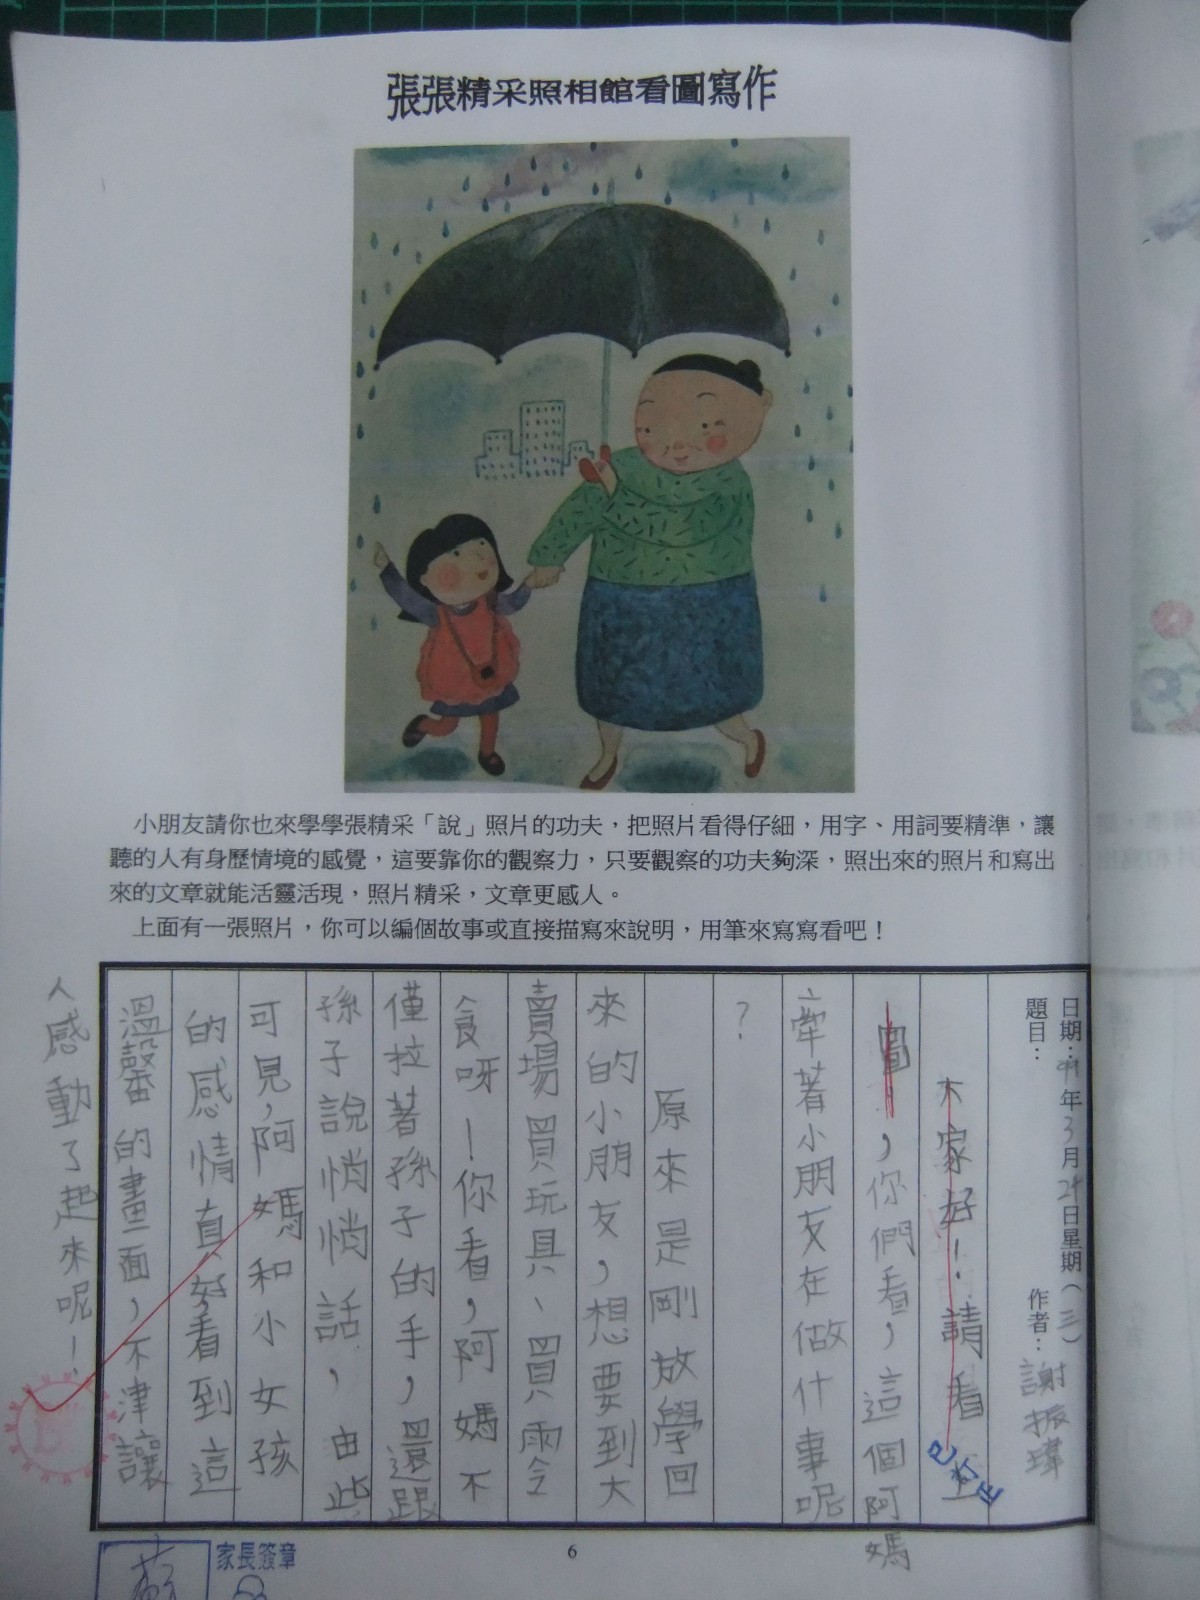 張張精采照相館看圖寫作
小朋友請你也來學學張精采「說」照片的功夫，把照片看得仔細，用字、用詞要精準，讓
聽的人有身歷情境的感覺，這要靠你的觀察力，只要觀察的功夫夠深，照出來的照片和寫出
來的文章就能活靈活現，照片精采，文章更感人。
上面有一張照片，你可以編個故事或直接描寫來說明，用筆來寫寫看吧！
日期：99年3月24日星期（三）
題目：
作者：謝振瑋
大家好！請看
圖，，你們看，這個阿媽
牽著小朋友在做什事呢
？
原來是剛放學回
來的小朋友，想要到大
賣場買玩具、買零
食呀！你看，阿媽不
僅拉著孫子的手，還跟
孫子說悄悄話，由此
可見，阿媽和小女孩
的感情真好看到這
溫馨的畫面，不津讓
人感動了起來呢！
已訂正
家長簽章
6